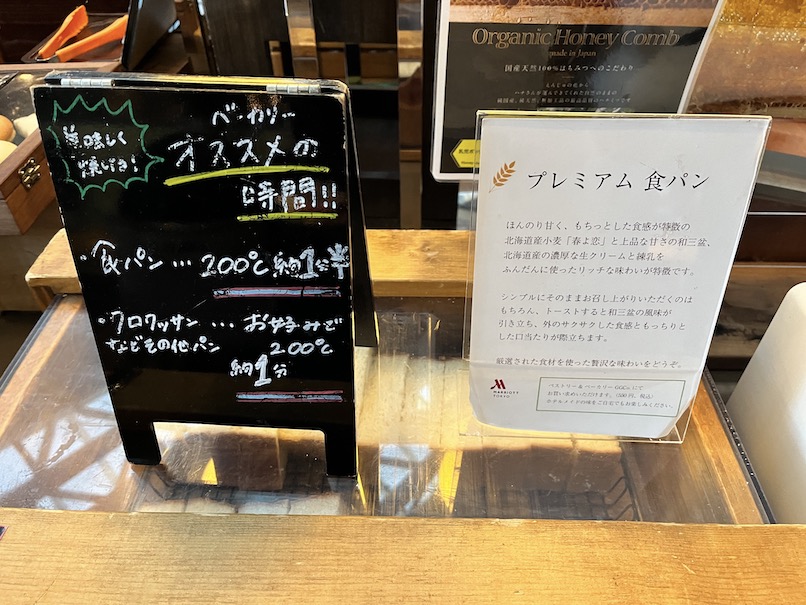 美味しく
焼ける!
ベーカリー
オススメの
時間!!
・食パン … 200℃ 約1分半
・クロワッサン … お好みで
などその他パン 200℃
約1分
Organic Honey Comb
made in Japan
国産天然100%はちみつへのこだわり
プレミアム 食パン
ほんのり甘く、もちっとした食感が特徴の
北海道産小麦「春よ恋」と上品な甘さの和三盆、
北海道産の濃厚な生クリームと練乳を
ふんだんに使ったリッチな味わいが特徴です。
シンプルにそのままお召し上がりいただくのは
もちろん、トーストすると和三盆の風味が
引き立ち、外のサクサクした食感ともっちりと
した口当たりが際立ちます。
厳選された食材を使った贅沢な味わいをどうぞ。
MARRIOTT
TOKYO
ペストリー & ベーカリー GGCo.にて
お買い求めいただけます。(500円、税込)
ホテルメイドの味をご自宅でもお楽しみください。